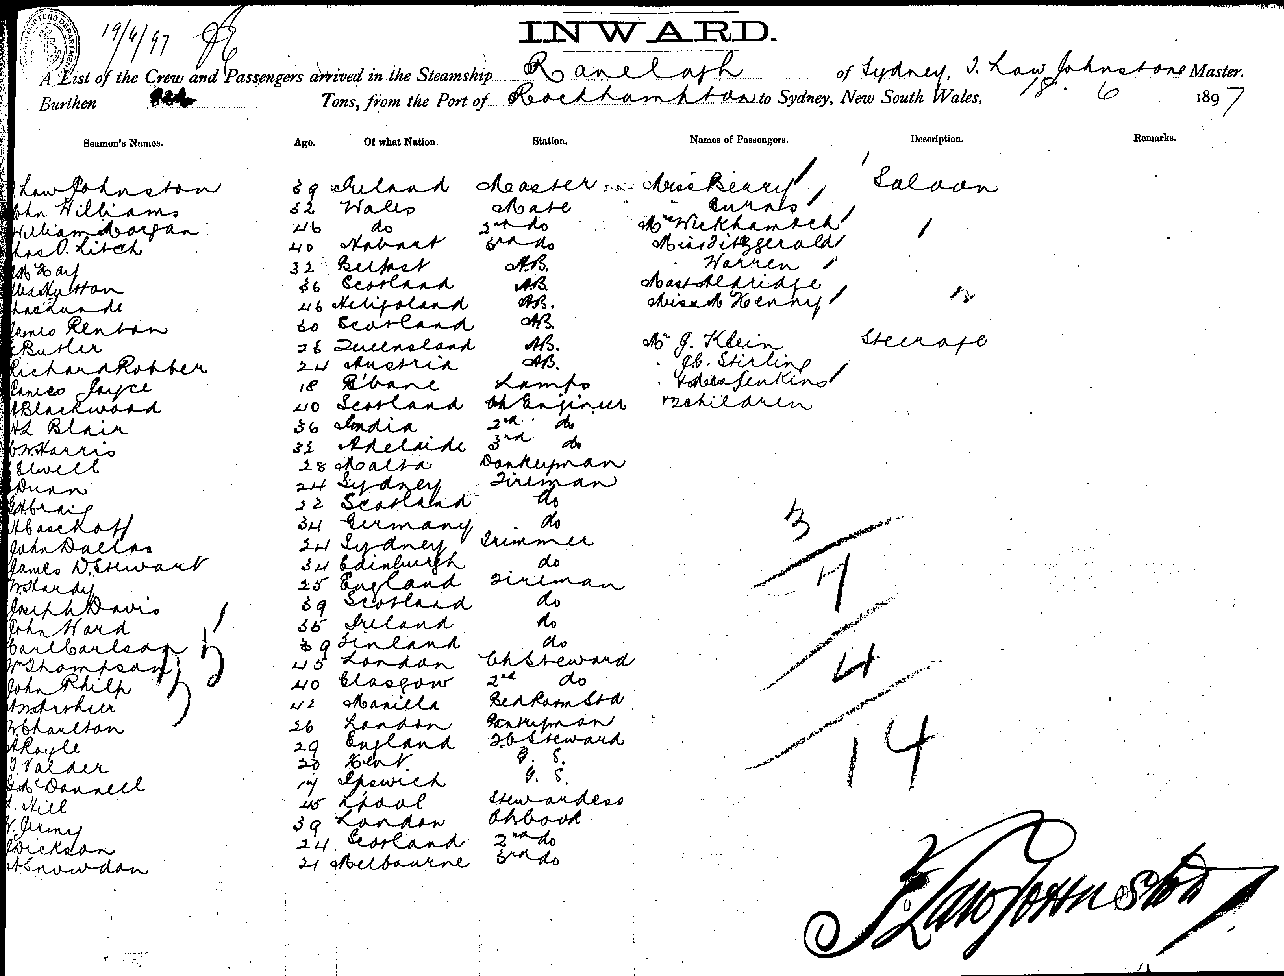 19/6/97
INWARD.
A List of the Crew and Passengers arrived in the Steamship Ranelagh of Sydney, J. Law Johnstone Master.
Burthen Tons, from the Port of Rockhamhton to Sydney, New South Wales, 18. 6 1897
Seamen's Names. Age. Of what Nation. Station. Names of Passengers. Description. Remarks.
Law Johnston 39 Ireland Master Miss Berry Saloon
John Williams 32 Wales Mate Burns
William Morgan 46 do 2nd do
O. Kitch 40 Hobart 3rd do Miss Fitzgerald
32 Belfast AB. Warren
36 Scotland AB. Mast Aldridge
46 Heligoland AB. Miss M Kenny
James Renton 30 Scotland AB.
Butler 26 Queensland AB. Mr J. Klein Steerage
Richard Robber 24 Austria AB. J.C. Stirling
James Joyce 18 B'bane Lamps Jenkins
Blackwood 40 Scotland Ch Engineer 2 children
Blair 36 India 2nd do
Harris 32 Adelaide 3rd do
Elwell 28 Malta Donkeyman
Dunn 24 Sydney Fireman
Craig 22 Scotland do
34 Germany do
John Dallas 24 Sydney Trimmer
James D. Stewart 34 Edinburgh do
W Hardy 25 England Fireman
Joseph Davis 39 Scotland do
John Ward 35 Ireland do
Carl Carlson 39 Finland do
W Thompson 45 London Ch Steward
John Philp 40 Glasgow 2nd do
42 Manilla Bed Room Std
Charlton 26 London Pantryman
Royle 29 England Steward
J Valder 20 Kent G. S.
McDonnell 19 Ipswich G. S.
Hill 45 L'pool Stewardess
39 London Ch Cook
Dickson 24 Scotland 2nd do
Snowdon 21 Melbourne 3rd do
3
7
4
14
J Law Johnston